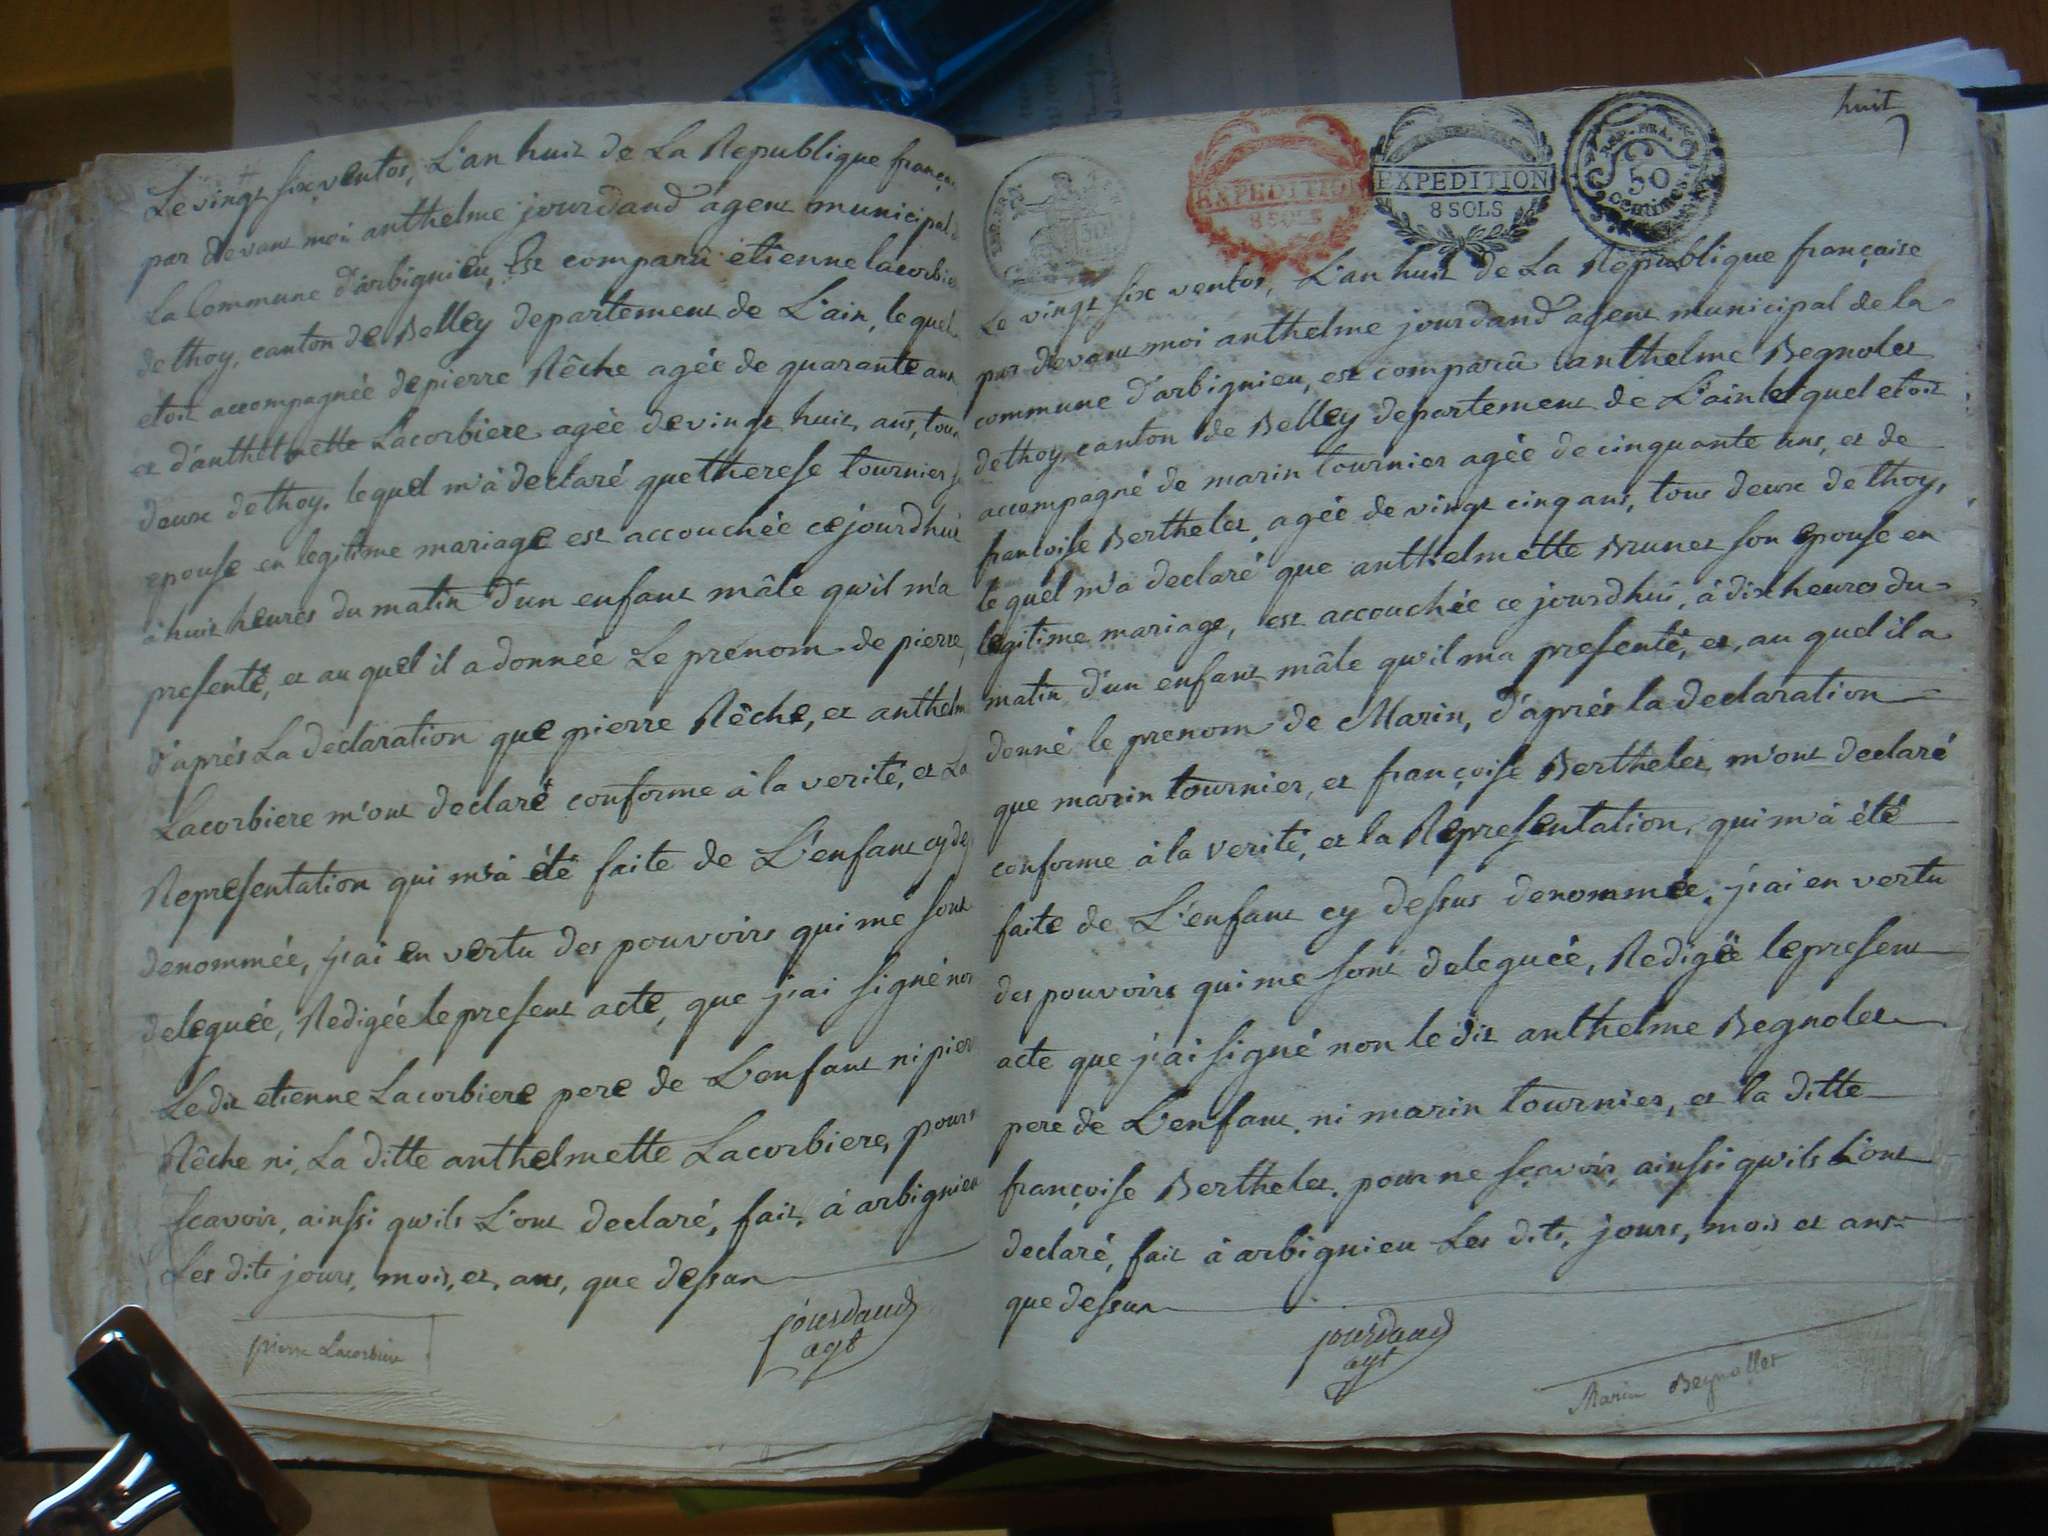 Le vingt six ventos, L'an huit de La Republique françai
par devant moi anthelme jourdand agent municipal d
La Commune d'arbignieu, Est comparû etienne lacorbier
de thoy, canton de Belley departement de L'ain, le quel
etoit accompagnée de pierre Rêche agée de quarante ans
et d'anthelmette Lacorbiere agée de vingt huit, ans, tous
deux de thoy, lequel m'à declaré que therese tournier s
epouse en legitime mariage est accouchée ce jourdhui
à huit heures du matin d'un enfant mâle qu'il m'a
presenté, et au quel il a donnée Le prenom de pierre,
d'aprés La declaration que pierre Rêche, et anthelm
Lacorbiere m'ont declaré conforme à la verité, et La
Representation qui m'à été faite de L'enfant cy des
denommée, j'ai en vertu des pouvoirs qui me sont
deleguée, Redigée le present acte, que j'ai signé non
Le dit etienne Lacorbiere pere de L'enfant ni pier
Rêche ni, La ditte anthelmette Lacorbiere, pour n
scavoir, ainssi qu'ils L'ont declaré, fait, à arbignieu
Les dits jours, mois, et, ans, que dessun
jourdand
agt
pierre Lacorbiere
huit
EXPEDITION
8 SOLS
EXPEDITION
8 SOLS
REP. FRA.
50
Centimes
Le vingt six ventos, L'an huit de La Republique française
par devant moi anthelme jourdand agent municipal de la
commune d'arbignieu, est comparû anthelme Begnolet
de thoy, canton de Belley departement de L'ain lequel etoit
accompagné de marin tournier agée de cinquante ans, et de
francoise Berthelet, agée de vingt cinq ans, tous deux de thoy,
le quel m'a declaré que anthelmette Brunet son epouse en
legitime mariage, est accouchée ce jourdhui, à dix heures du
matin d'un enfant mâle qu'il ma presenté, et, au quel il a
donné le prenom de Marin, d'aprés la declaration
que marin tournier, et françoise Berthelet, m'ont declaré
conforme à la verité, et la Representation, qui m'à été
faite de L'enfant cy dessus denommée, j'ai en vertu
des pouvoirs qui me sont deleguée, Redigée le present
acte que j'ai signé non le dit anthelme Begnolet
pere de L'enfant, ni marin tournier, et la ditte
françoise Berthelet, pour ne sçavoir, ainssi qu'ils L'ont
declaré, fait à arbignieu Les dits, jours, mois et ans
que dessun
jourdand
agt
Marin Beynollet